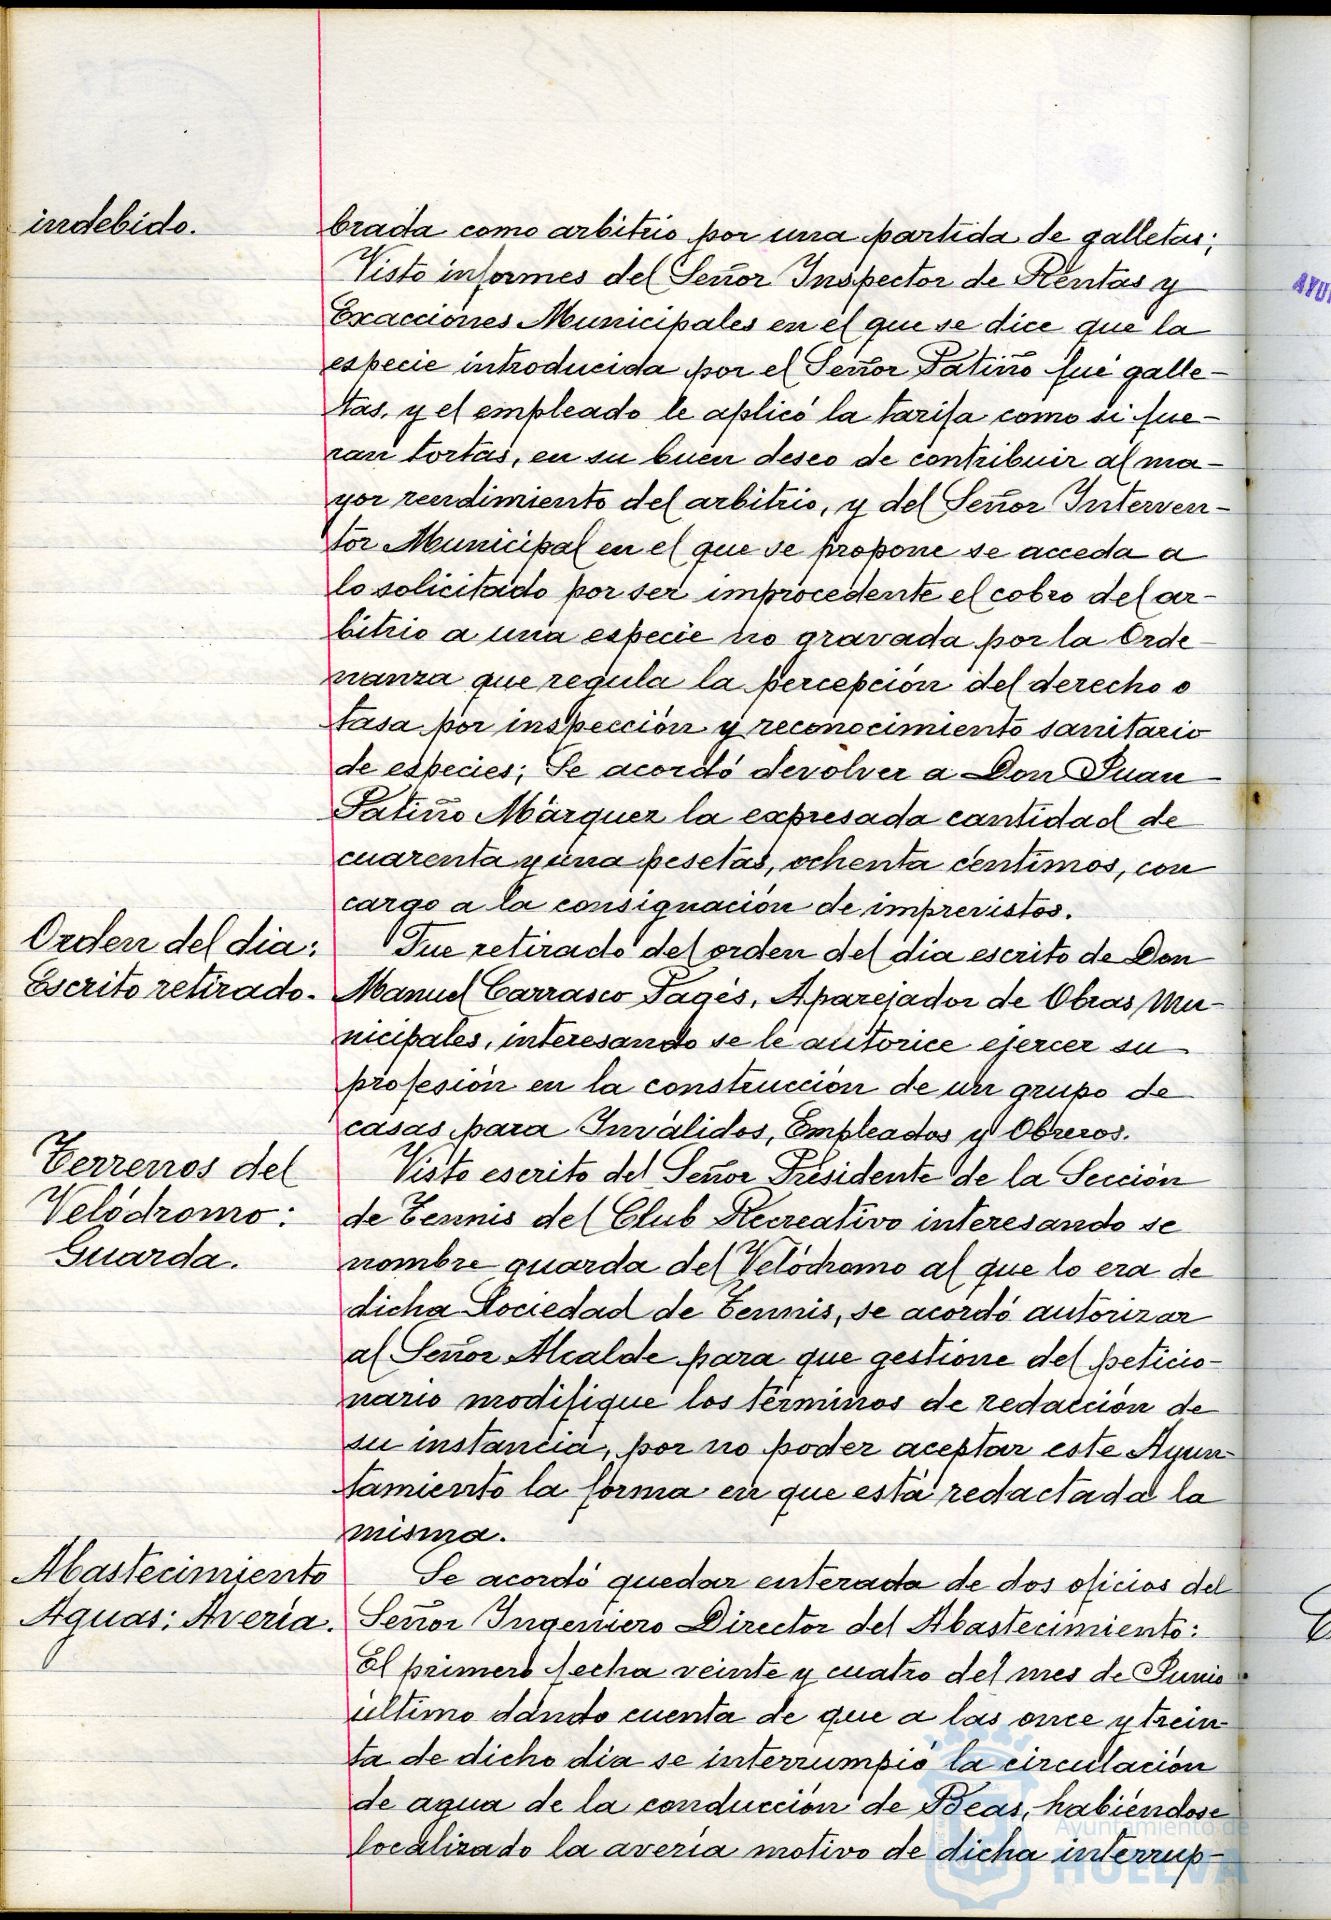 indebido.
brada como arbitrio por una partida de galletas;
Visto informes del Señor Inspector de Rentas y
Exacciones Municipales en el que se dice que la
especie introducida por el Señor Patiño fué galle-
tas, y el empleado le aplicó la tarifa como si fue-
ran tortas, en su buen deseo de contribuir al ma-
yor rendimiento del arbitrio, y del Señor Interven-
tor Municipal en el que se propone se acceda a
lo solicitado por ser improcedente el cobro del ar-
bitrio a una especie no gravada por la Orde-
nanza que regula la percepción del derecho o
tasa por inspección y reconocimiento sanitario
de especies; Se acordó devolver a Don Juan
Patiño Márquez la expresada cantidad de
cuarenta y una pesetas, ochenta céntimos, con
cargo a la consignación de imprevistos.
Orden del dia:
Escrito retirado.
Fue retirado del orden del día escrito de Don
Manuel Carrasco Pagés, Aparejador de Obras Mu-
nicipales, interesando se le autorice ejercer su
profesión en la construcción de un grupo de
casas para Inválidos, Empleados y Obreros.
Terrenos del
Velódromo:
Guarda.
Visto escrito del Señor Presidente de la Sección
de Tennis del Club Recreativo interesando se
nombre guarda del Velódromo al que lo era de
dicha Sociedad de Tennis, se acordó autorizar
al Señor Alcalde para que gestione del peticio-
nario modifique los términos de redacción de
su instancia, por no poder aceptar este Ayun-
tamiento la forma en que está redactada la
misma.
Abastecimiento
Aguas: Avería.
Se acordó quedar enterada de dos oficios del
Señor Ingeniero Director del Abastecimiento:
El primero fecha veinte y cuatro del mes de Junio
último dando cuenta de que a las once y trein-
ta de dicho día se interrumpió la circulación
de agua de la conducción de Beas, habiéndose
localizado la avería motivo de dicha interrup-
Ayuntamiento de
HUELVA